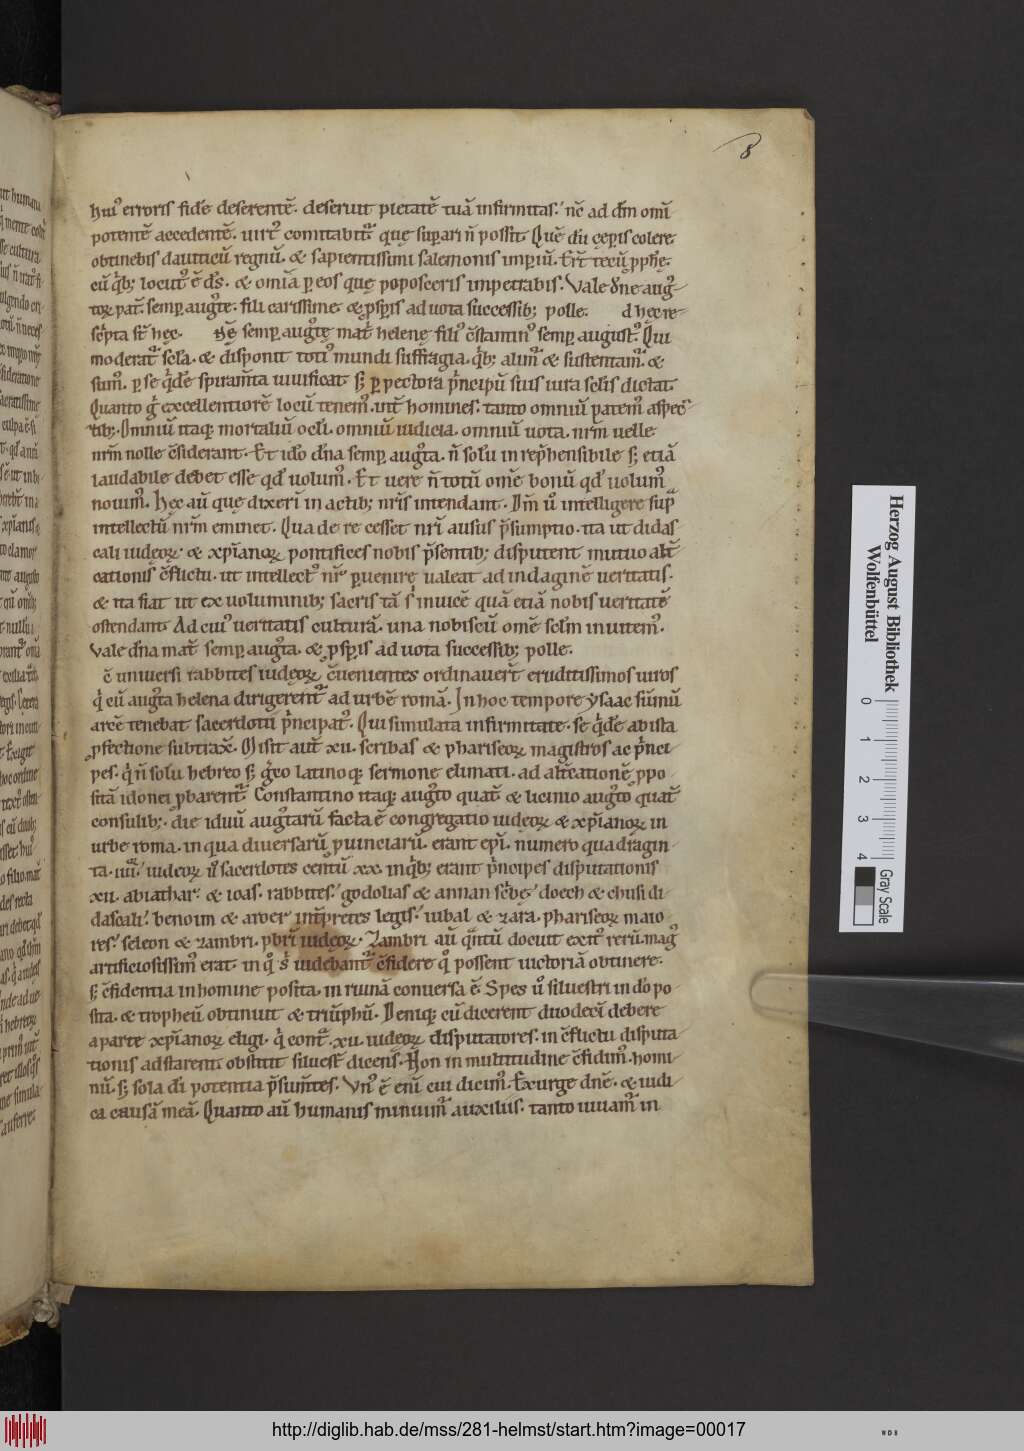 8
hui᷒ erroris fidē deserentē. deseruit pietatē tuā infirmitas. nē ad dm̄ omī
potentē accedentē. uirt᷒ comitabit᷑ quę suꝑari n̄ possit. Quē dū cęꝑis colere.
obtinebis dauiticū regnū. & sapientissimi salemonis imꝑiū. Er̄t tecū ꝓphę.
cū qⁱb; locut᷒ ē ds̄. & omīa ꝑ eos quę poposceris impetrabis. Vale dn̄e aug᷒
toꝝ pat̄. semꝑ aug᷒te. fili carissime. & ꝓsꝑis ad uota successib; polle. d hęc re
sc̄pta st̄ hęc. semꝑ aug᷒tę mat̄ helenę fili᷒ c̄stantin᷒ semꝑ august᷒. Qui
moderat᷑ scl̄a. & disponit toti᷒ mundi suffragia. qⁱb; alim᷑ & sustentam᷑. &
sum᷒. ꝑ se qⁱdē spiram̄ta uiuificat s; ꝑ pectora pⁱncipū suis iura sclīs dictat
Quanto ḡ excellentiorē locū tenem᷒. int̄ homines. tanto omniū patem᷒ aspec
tib;. Omniū itaq; mortaliū oclī. omniū iudicia. omniū uota. nrm̄ uelle
nrm̄ nolle c̄siderant. Et idō dn̄a semꝑ aug᷒ta. n̄ solū in rep̄hensibile s; etiā
laudabile debet esse qd̄ uolum᷒. Et uere n̄ totū om̄e bonū qd̄ uolum᷒
nouim᷒. Hęc aū quę dixerī in actib; nrīs intendant. Dm̄ ū intelligere supͣ
intellectū nrm̄ eminet. Qua de re cesset nrī ausus p̄sumptio. ita ut didas
cali iudęoꝝ & xp̄ianoꝝ pontifices nobis p̄sentib; disputent mutuo alt̄
cationis c̄flictu. ut intellect᷒ nr̄ ꝑuenire ualeat ad indaginē ueritatis.
& ita fiat ut ex uoluminib; sacris tā sⁱ inuicē quā etiā nobis ueritatē
ostendant. Ad cui᷒ ueritatis culturā. una nobiscū om̄e sclm̄ inuitem᷒.
Vale dn̄a mat̄ semꝑ aug᷒ta. & ꝓsꝑis ad uota successib; polle.
c̄ uniuersi rabbites iudęoꝝ c̄uenientes ordinauer̄t eruditissimos uiros
qⁱ cū aug᷒ta helena dirigerent᷑ ad urbē romā. In hoc tempore ysaac sūmū
arcē tenebat sacerdotū pⁱncipat᷒. Qui simulata infirmitate. se qⁱdē ab ista
ꝓfectione subtrax̄. Misit aut̄ xii. scribas & phariseoꝝ magistros ac pⁱnci
pes. qⁱ n̄ solū hebreo s; gͤco latinoq; sermone elimati. ad alt̄cationē ꝓpo
sitā idonei ꝓbarent᷑. Constantino itaq; aug᷒to quat̄ & licinio aug᷒to quat̄
consulib;. die iduū aug᷒tarū facta ē congregatio iudęoꝝ & xp̄ianoꝝ in
urbe roma. in qua diuersarū ꝓuinciarū. erant ep̄i. numero quadragin
ta. iudęoꝝ ū sacerdotes centū xx. in qⁱb; erant pⁱncipes disputationis
xii. abiathar. & ioas. rabbites. godolias & annan sc̄bę. doech & chusi di
dascali. benoim & aroer int̄pretes legis. iubal & zara. phariseoꝝ maio
res. seleon & zambri. pbrī iudęoꝝ. Zambri aū qͣntū docuit exit᷒ rerū. mag᷒
artificiosissim᷒ erat. in qͦ sⁱ iudebant᷑ c̄fidere qͦ possent uictoriā obtinere.
s; c̄fidentia in homine posita. in ruinā conuersa ē. Spes ū siluestri in dō po
sita. & tropheū obtinuit & triūphū. Deniq; cū dicerent duodecī debere
a parte xp̄ianoꝝ eligi. qⁱ contͣ xii. iudęoꝝ disputatores. in c̄flictu disputa
tionis adstarent. obstitit siluest̄ dicens. Non in multitudine c̄fidim᷒. homi
nū. s; sola dī potentia p̄sum̄tes. Vn᷒ ē enī cui dicim᷒. Exurge dn̄e. & iudi
ca causā meā. Quanto aū humanis minuim᷑ auxiliis. tanto iuuam᷑ in
Herzog August Bibliothek
Wolfenbüttel
0 1 2 3 4
Gray Scale
http://diglib.hab.de/mss/281-helmst/start.htm?image=00017